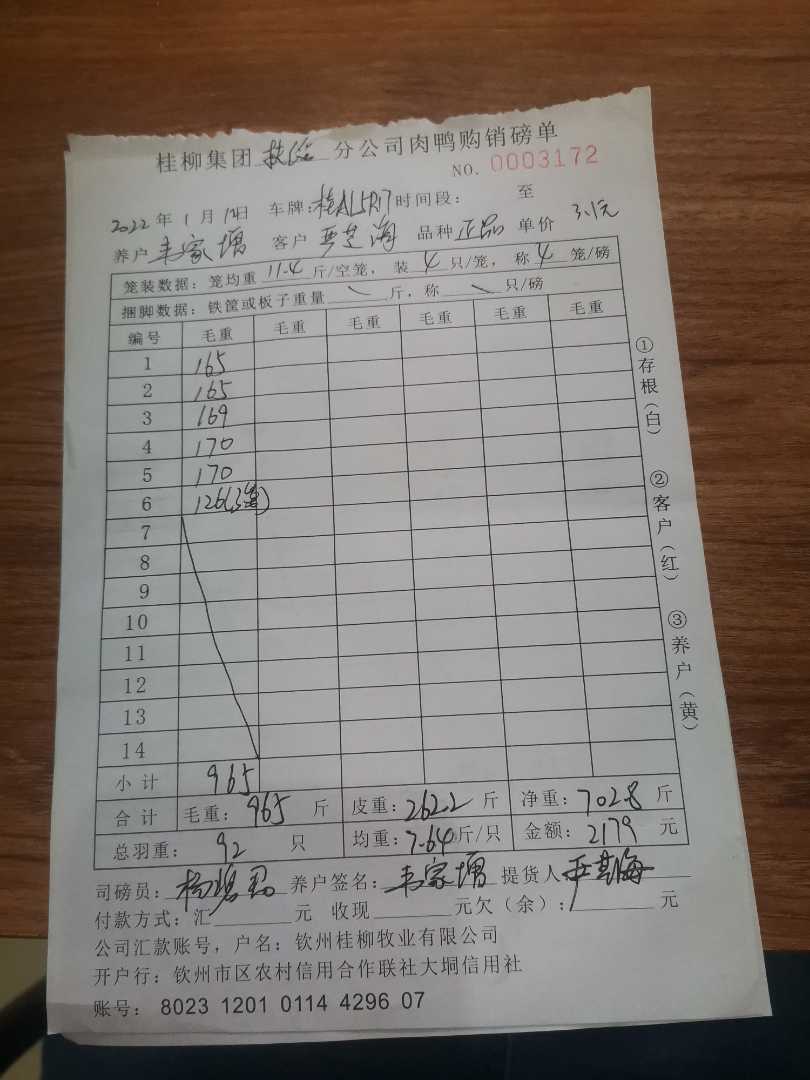 桂柳集团扶绥分公司肉鸭购销磅单
NO. 0003172
2022年1月12日 车牌:桂AL5R17 时间段: 至
养户 韦家增 客户 严芝海 品种 正品 单价 3.1元
笼装数据: 笼均重 11.4 斤/空笼, 装 4 只/笼, 称 4 笼/磅
捆脚数据: 铁筐或板子重量 \ 斤, 称 \ 只/磅
编号 毛重 毛重 毛重 毛重 毛重 毛重
1 165
2 165
3 169
4 170
5 170
6 126(3笼)
7
8
9
10
11
12
13
14
小计 965
合计 毛重: 965 斤 皮重: 262.2 斤 净重: 702.8 斤
总羽重: 92 只 均重: 7.64 斤/只 金额: 2179 元
司磅员: 杨 养户签名: 韦家增 提货人 严芝海
付款方式: 汇 元 收现 元欠(余): 元
公司汇款账号, 户名: 钦州桂柳牧业有限公司
开户行: 钦州市区农村信用合作联社大垌信用社
账号: 8023 1201 0114 4296 07
①存根(白) ②客户(红) ③养户(黄)